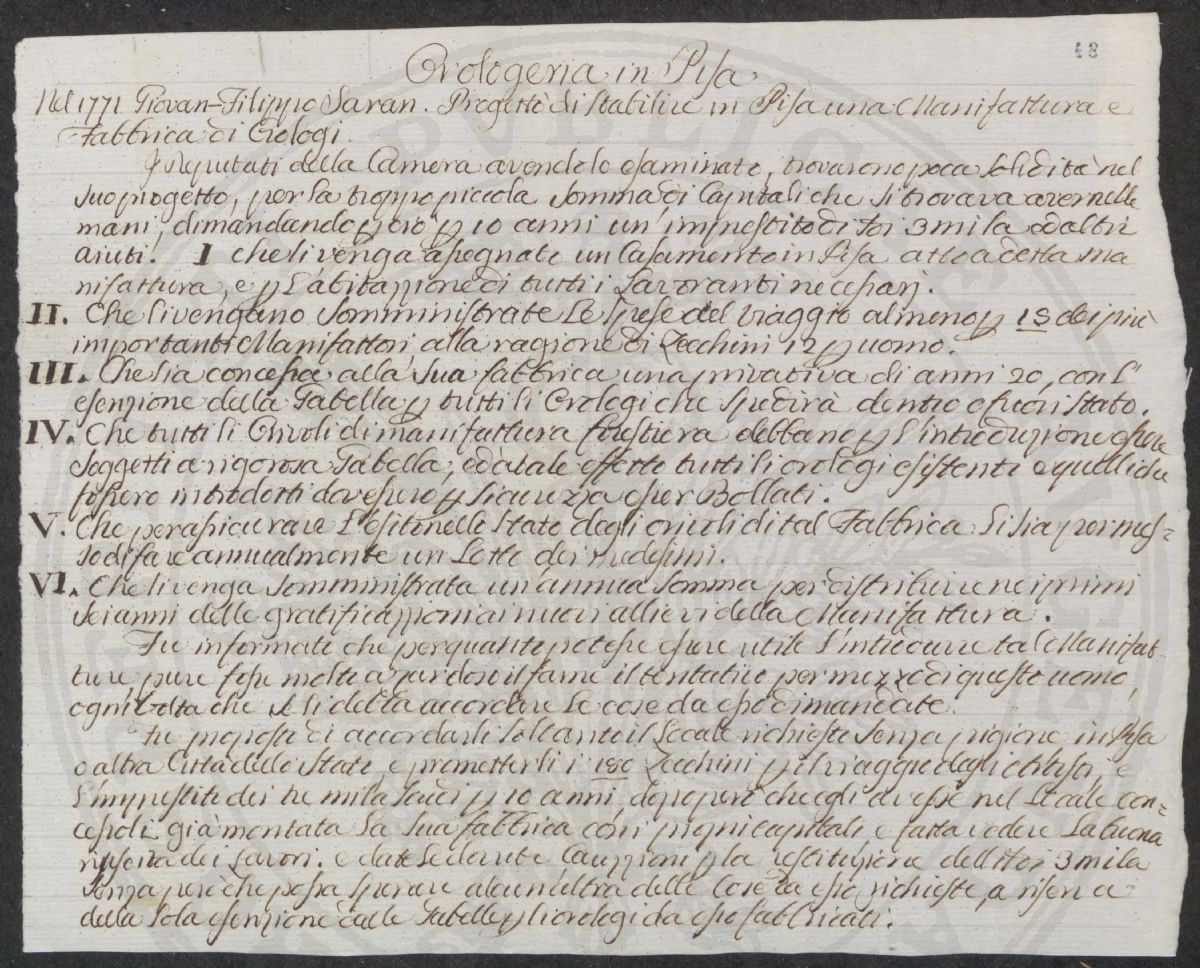 48
Orologeria in Pisa
Nel 1771 Giovan-Filippo Saran. Progettò di stabilire in Pisa una Manifattura e
Fabbrica di Orologi.
I Deputati della Camera avendolo esaminato, trovarono poca solidità nel
suo progetto, per la troppo piccola somma di Capitali che si trovava aver nelle
mani, dimandando p ciò p 10 anni un' imprestito di 3 mila ed altri
aiuti. I che li venga assegnato un Casamento in Pisa atto a detta ma
nifattura, e p l'abitazione di tutti i Lavoranti necessarj.
II. Che li vengano somministrate le spese del viaggio almeno p 15 dei più
importanti Manifattori, alla ragione di Zecchini 12 p uomo.
III. Che sia concessa alla sua fabbrica una privativa di anni 20, con l'
esenzione della Gabella p tutti li Orologi che spedirà dentro e fuori stato.
IV. Che tutti li Orivoli di manifattura forestiera debbano p l'introduzione essere
soggetti a rigorosa Gabella; ed a tale effetto tutti li orologi esistenti e quelli che
fossero introdotti dovessero p sicurezza esser Bollati.
V. Che per assicurare l'esito nello Stato degli orivoli di tal Fabbrica li sia permes=
so di fare annualmente un Lotto dei medesimi.
VI. Che li venga somministrata un'annua somma per distribuire nei primi
sei anni delle gratificazzioni ai nuovi allievi della Manifattura.
Fu informato che per quanto potesse essere utile l'introdurre tal Manifat-
tura, pure fosse molto azzardoso il farne il tentativo per mezzo di questo uomo,
ogni volta che se li debba accordare le cose da esso dimandate.
Fu proposto di accordarli soltanto il Locale richiesto senza pigione in Pisa
o altra Città dello Stato, e prometterli i 180 Zecchini p il viaggio degli Artisti, e
l'imprestito dei tre mila scudi p 10 anni, dopo però che egli avesse nel Locale con=
cessoli già montata la sua fabbrica con i proprj capitali e fatta vedere la buona
riuscita dei lavori. e date le dovute Cauzzioni p la restituzione delli 3 mila
senza però che possa sperare alcun'altra delle cose da esso richieste, a riserva
della sola esenzione dalle Gabelle p li orologi da esso fabbricati.